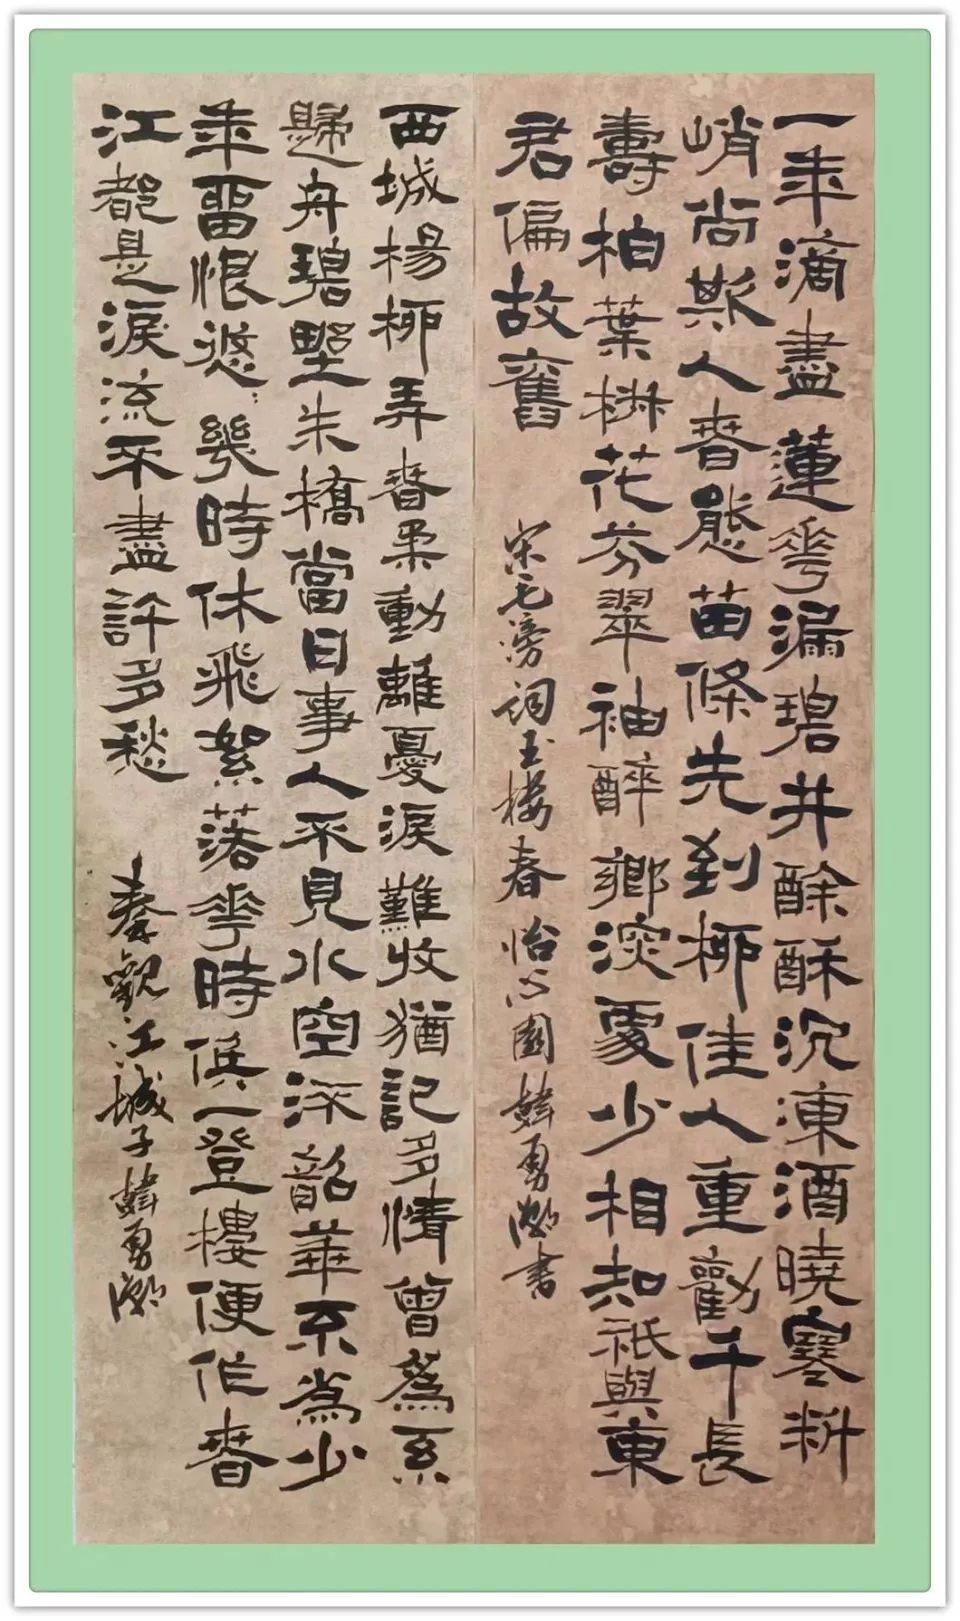 一年滴盡蓮花漏碧井酴酥沉凍酒曉寒料
峭尚欺人春態苗條先到柳佳人重勸千長
壽柏葉椒花芬翠袖醉鄉深處少相知祇與東
君偏故舊
宋毛滂詞玉樓春 怡心園韓勇書
西城楊柳弄春柔動離憂淚難收猶記多情曾爲系
歸舟碧野朱橋當日事人不見水空流韶華不為少
年留恨悠：幾時休飛絮落花時候一登樓便作春
江都是淚流不盡許多愁
秦觀江城子韓勇